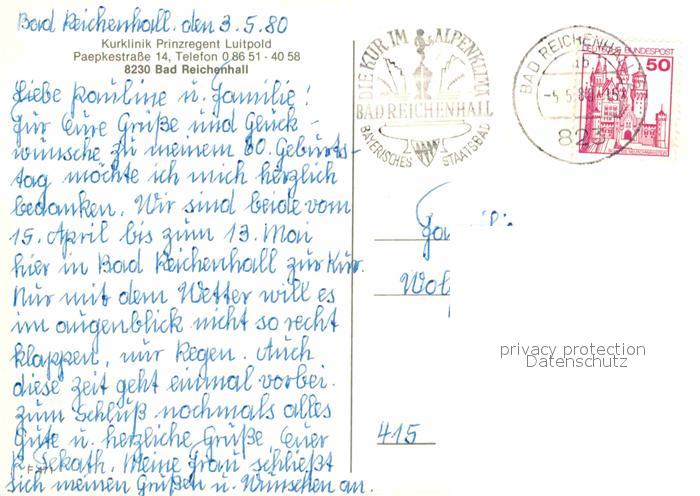 Bad Reichenhall, den 3.5.80
Kurklinik Prinzregent Luitpold
Paepkestraße 14, Telefon 0 86 51 - 40 58
8230 Bad Reichenhall
Liebe Pauline u. Familie!
Für Eure Grüße und Glück-
wünsche zu meinem 80. Geburts-
tag möchte ich mich herzlich
bedanken. Wir sind beide vom
15. April bis zum 13. Mai
hier in Bad Reichenhall zur Kur.
Nur mit dem Wetter will es
im augenblick nicht so recht
klappen, nur Regen. Auch
diese Zeit geht einmal vorbei.
Zum Schluß nochmals alles
Gute u. herzliche Grüße Euer
Meine Frau schließt
sich meinen Grüßen u. Wünschen an.
DIE KUR IM ALPENKLIMA
BAD REICHENHALL
BAYERISCHES STAATSBAD
BAD REICHENHALL
823
DEUTSCHE BUNDESPOST
50
415
privacy protection
Datenschutz